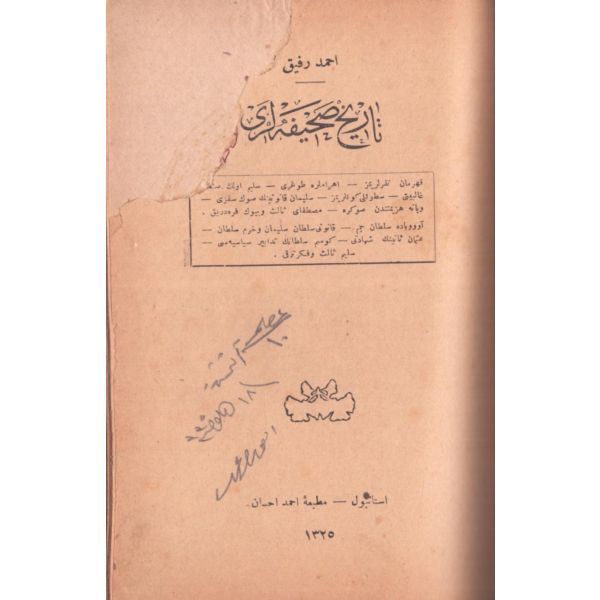 احمد رفيق
تاريخ صحيفه لرى
قهرمان نفرلريمز — اهراملره طوغرى — سليم اولك
غالبيتى — سطوتلى كونلريمز — سليمان قانونينك صوك سفرى —
ويانه هزيمتندن صوكره — مصطفاى ثالث وبيوك فره دريق .
آوروپاده سلطان جم — قانونى سلطان سليمان وخرم سلطان —
عثمان ثانينك شهادتى — كوسم سلطانك تدابير سياسيه سى —
سليم ثالث وفكر ترقى .
استانبول — مطبعۀ احمد احسان
١٣٢٥